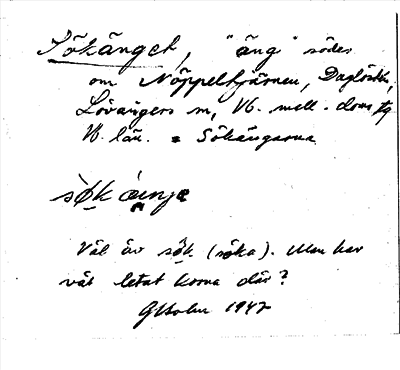 Sökänget, "äng" söder
om Nöppeltjärnen, Daglösten,
Lövångers sn, Vb. mell. doms tg
Vb. län. = Sökängarna
Väl av sök (söka). Man har
väl letat korna där?
GHolm 1947